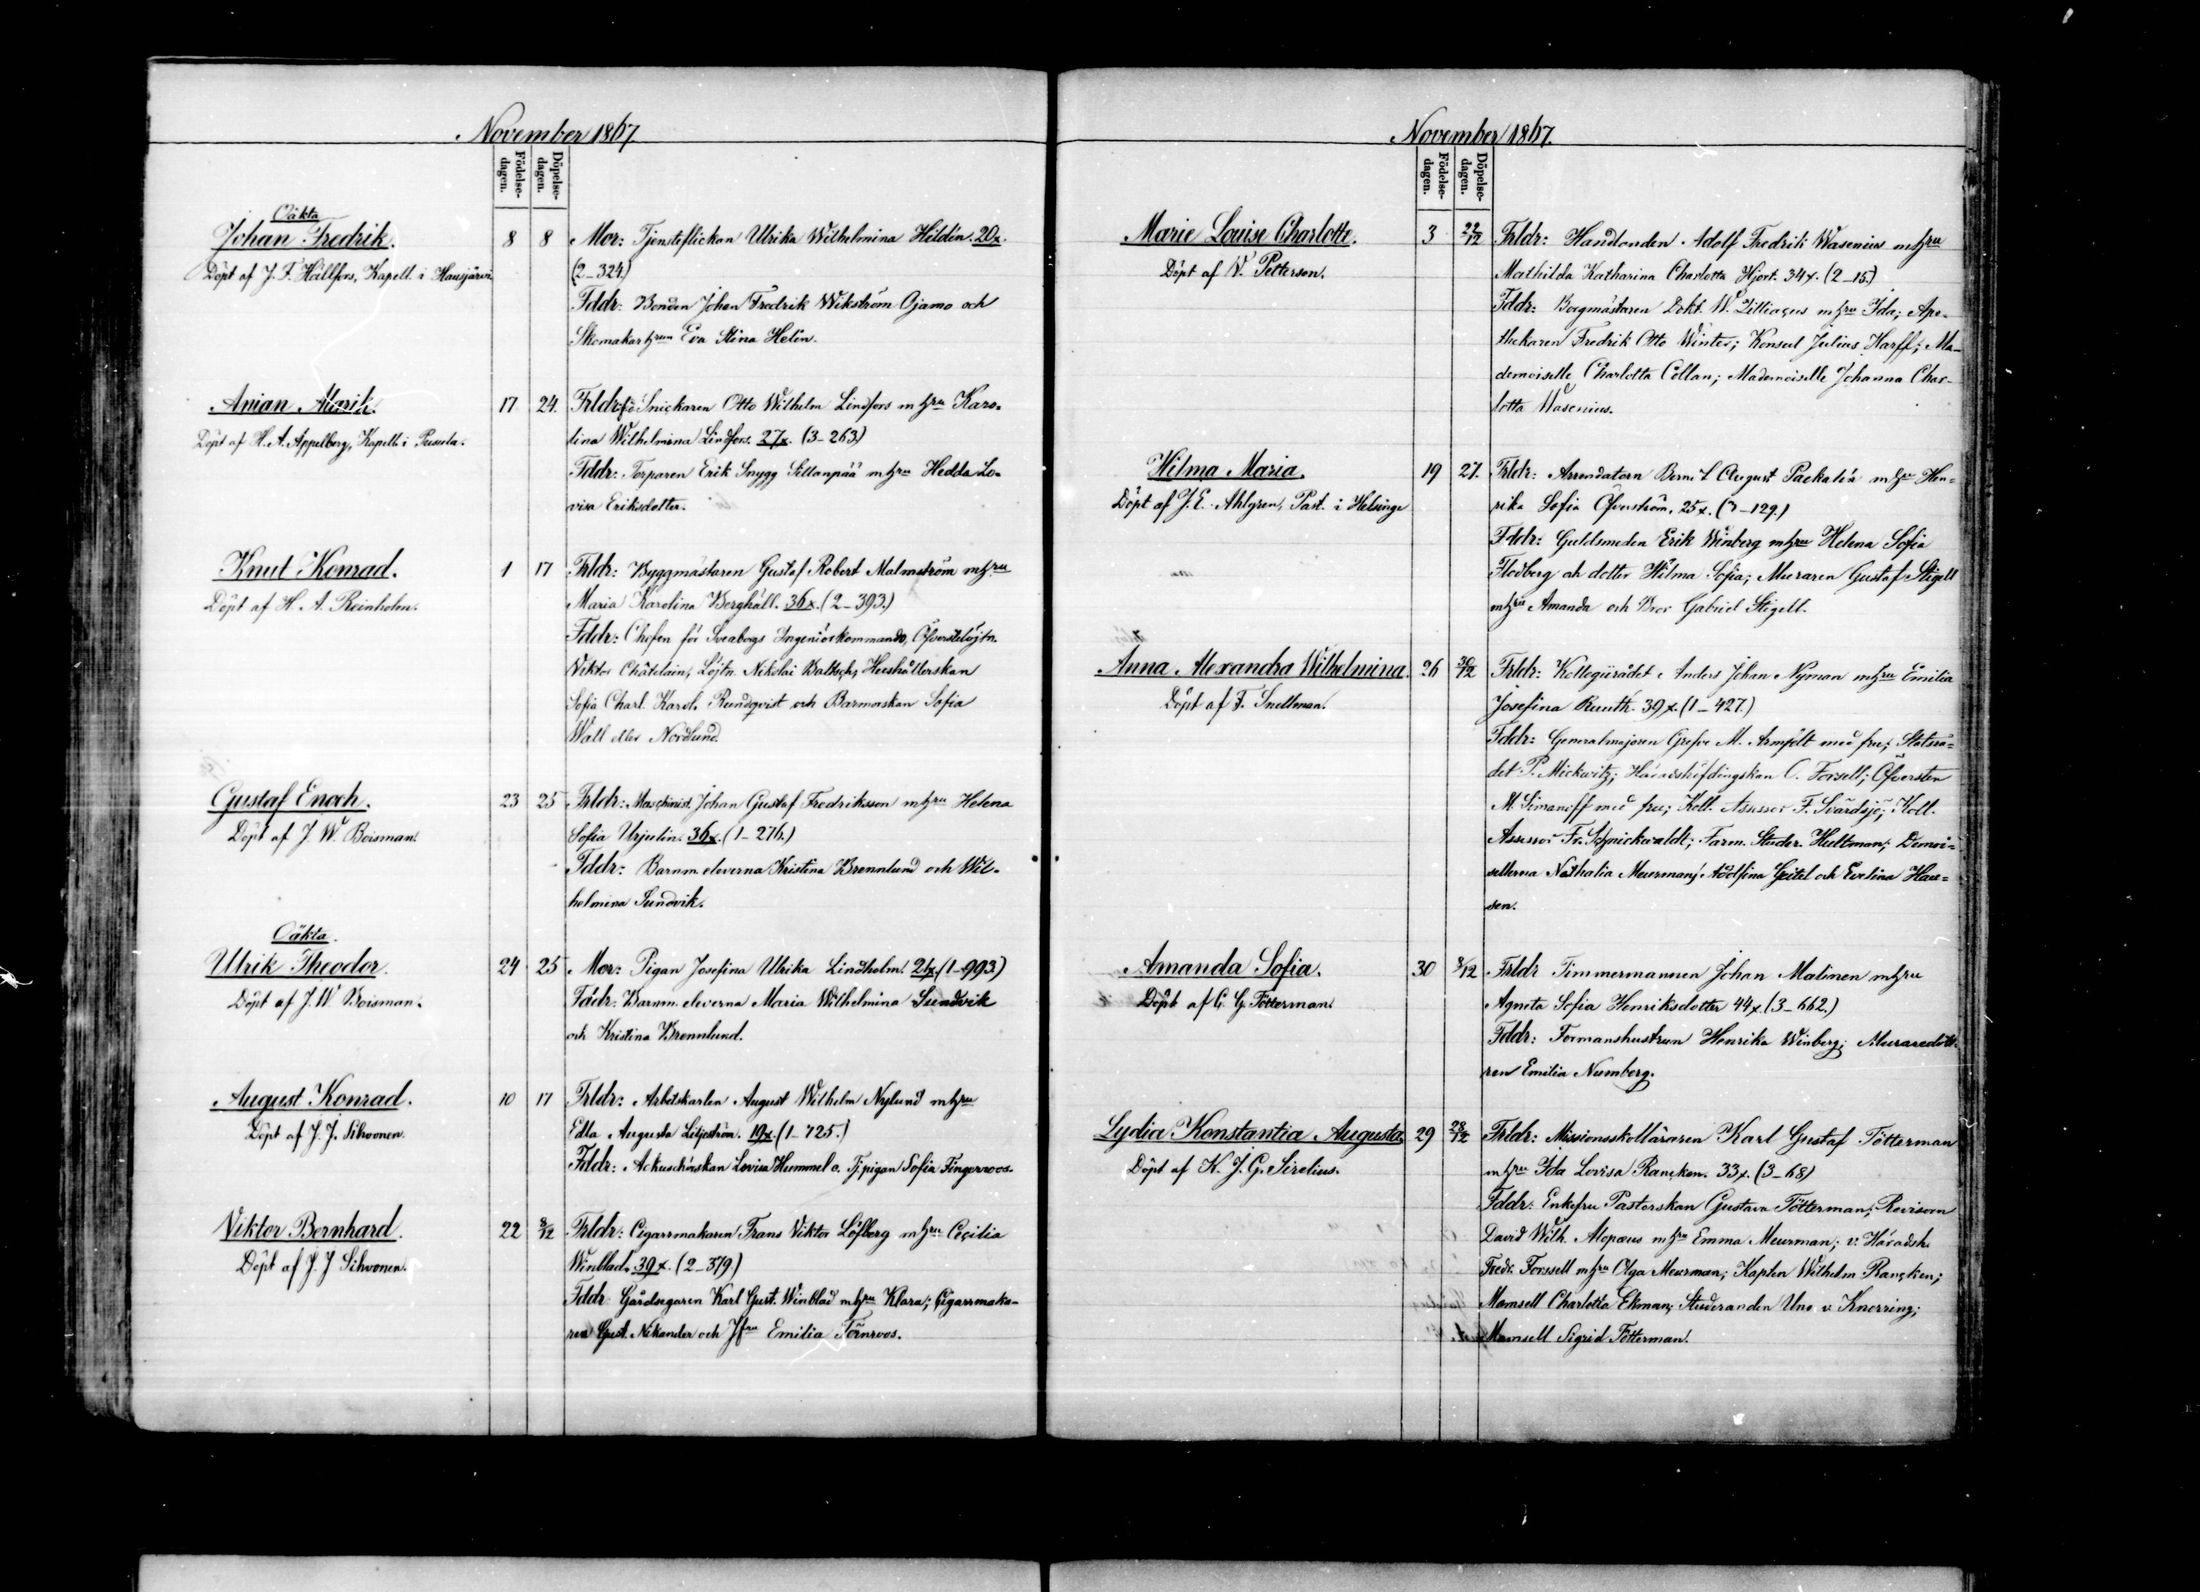 November 1867.
Födelse-dagen.
Döpelse-dagen.
Oäkta
Johan Fredrik.
Döpt af J. F. Hällfors, Kapell. i Hausjärvi
8 8
Mor: Tjensteflickan Ulrika Wilhelmina Heldén. 20x.
(2_324)
Fddr: Bonden Johan Fredrik Wikström Ojamo och
Skomakarhrun Eva Stina Helin.
Anian Alarik.
Döpt af H. A. Appelberg, Kapell. i Pusula.
17 24.
Frldr: Snickaren Otto Wilhelm Lindfors m hru Karo-
lina Wilhelmina Lindfors. 27x. (3_263)
Fddr: Torparen Erik Snygg Sillanpää m hru Hedda Lo-
visa Eriksdotter.
Knut Konrad.
Döpt af H. A. Reinholm.
1 17
Frldr: Byggmästaren Gustaf Robert Malmström m hru
Maria Karolina Berghäll. 36x. (2_393.)
Fddr: Chefen för Sveaborgs Ingeniörkommando, Öfverstelöjtn.
Viktor Châtelain, Löjtn. Nikolai Hushållerskan
Sofia Charl. Karol. Rundqvist och Barnmorskan Sofia
Wall eller Nordlund.
Gustaf Enoch.
Döpt af J. W. Boisman.
23 25
Frldr: Maschinist. Johan Gustaf Fredriksson m hru Helena
Sofia Urjulin. 36x. (1_276.)
Fddr: Barnm. eleverna Kristina Brennlund och Wil-
helmina Sundvik.
Oäkta.
Ulrik Theodor.
Döpt af J. W. Boisman.
24 25
Mor: Pigan Josefina Ulrika Lindholm. 21x. (1_993.)
Fddr: Barnm. eleverna Maria Wilhelmina Sundvik
och Kristina Brennlund.
August Konrad.
Döpt af J. J. Sihvonen.
10 17
Frldr: Arbetskarlen August Wilhelm Nylund m hru
Edla Augusta Liljeström. 19x. (1_725.)
Fddr: Ackuschörskan Lovisa Hummel o. Tj.pigan Sofia Fingerroos.
Viktor Bernhard.
Döpt af J. J. Sihvonen.
22 8/12
Frldr: Cigarrmakaren Frans Viktor Löfberg m hru Cecilia
Winblad. 39x. (2_379.)
Fddr: Gårdsegaren Karl Gust. Winblad m hru Klara; Cigarrmaka-
ren Gust. Nikander och Jfru Emilia Törnroos.
November 1867.
Födelse-dagen.
Döpelse-dagen.
Marie Louise Charlotte.
Döpt af W. Petterson.
3 22/12
Frldr: Handlanden Adolf Fredrik Wasenius m hru
Mathilda Katharina Charlotta Hjort. 34x. (2_15.)
Fddr: Borgmästaren Dokt. W. Zilliacus m hru Ida; Apo-
thekaren Fredrik Otto Winter; Konsul Julius Harff; Ma-
demoiselle Charlotta Collan; Mademoiselle Johanna Char-
lotta Wasenius.
Hilma Maria.
Döpt af J. E. Ahlgren, Past. i Helsinge
19 27.
Frldr: Arrendatorn Bernt August Packalén m hru Hen-
rika Sofia Öfverström. 25x. (3_129.)
Fddr: Guldsmeden Erik Winberg m hru Helena Sofia
Flodberg och dotter Hilma Sofia; Muraren Gustaf Stigell
m hru Amanda och Bror Gabriel Stigell.
Anna Alexandra Wilhelmina.
Döpt af F. Snellman.
26 30/12
Frldr: Kollegiirådet Anders Johan Nyman m hru Emilia
Josefina Ruuth. 39x. (1_427.)
Fddr: Generalmajoren Grefve M. Armfelt med fru; Statsrå-
det P. Mickwitz; Häradshöfdingskan C. Forsell; Öfversten
M. Simanoff med fru; Koll. Assessor F. Svärdsjö; Koll.
Assessor Fr. Spnickwaldt; Farm. Studer. Hultman; Demoi-
sellerna Nathalia Meurman; Adolfina Geitel och Evelina Han-
sen.
Amanda Sofia.
Döpt af C. G. Tötterman.
30 8/12
Frldr Timmermannen Johan Malinen m hru
Agneta Sofia Henriksdotter 44x. (3_662.)
Fddr: Formanshustrun Henrika Winberg; Muraredott-
ren Emilia Numberg.
Lydia Konstantia Augusta
Döpt af K. J. G. Sirelius.
29 28/12
Frldr: Missionsskolläraren Karl Gustaf Tötterman
m hru Ida Lovisa Rancken. 33x. (3_68)
Fddr: Enkefru Pastorskan Gustava Tötterman; Revisorn
David Wilh. Alopæus m hru Emma Meurman; v. Häradsh.
Fredr. Forssell m hru Olga Meurman; Kapten Wilhelm Rancken;
Mamsell Charlotta Ekman; Studeranden Uno v. Knorring;
Mamsell Sigrid Tötterman.